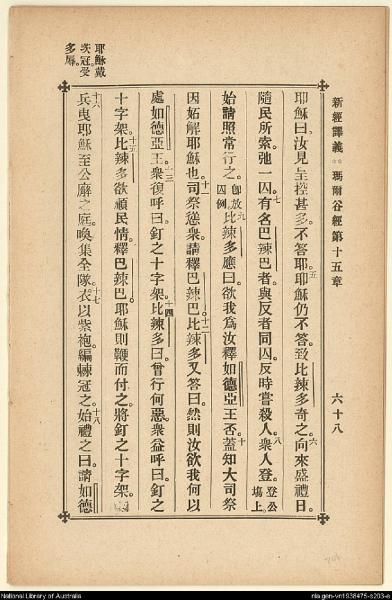 新經譯義 瑪爾谷經第十五章 六十八
耶穌曰。汝見呈控甚多。不答耶。五耶穌仍不答。致比辣多奇之。六向來盛禮日。
隨民所索。弛一囚。七有名巴辣巴者。與反者同囚。反時嘗殺人。八衆人登。登公塲上
始請照常行之。卽放囚例九比辣多應曰。欲我為汝釋如德亞王否。十蓋知大司祭
因妬解耶穌也。十一司祭慫衆。請釋巴辣巴。十二比辣多又答曰。然則汝欲我何以
處如德亞王。十三衆復呼曰。釘之十字架。十四比辣多曰。曾行何惡。衆益呼曰。釘之
十字架。十五比辣多欲順民情。釋巴辣巴。耶穌則鞭而付之。將釘之十字架。
十六兵曳耶穌至公廨之庭。喚集全隊。十七衣以紫袍。編棘冠之。十八始禮之曰。請如德
耶穌戴
茨冠受
多辱。
National Library of Australia
nla.gen-vn1938475-s203-e